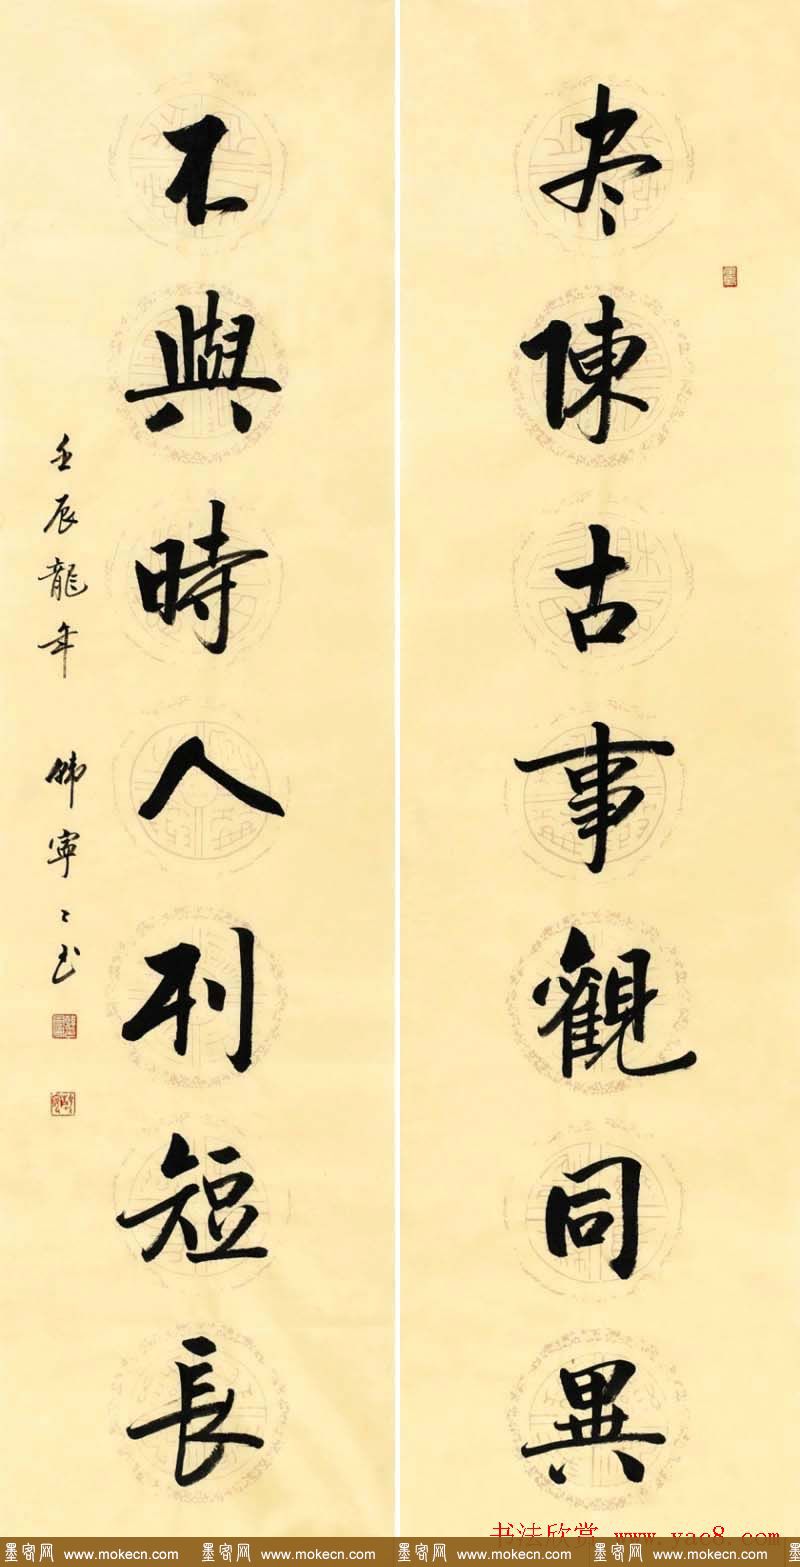 尽陳古事觀同異
不與時人列短長
壬辰龍年 韩寧寧书
书法欣赏 www.yac8.com
墨客网 www.mokecn.com 墨客网 www.mokecn.com 墨客网 www.mokecn.com 墨客网 www.mokecn.com